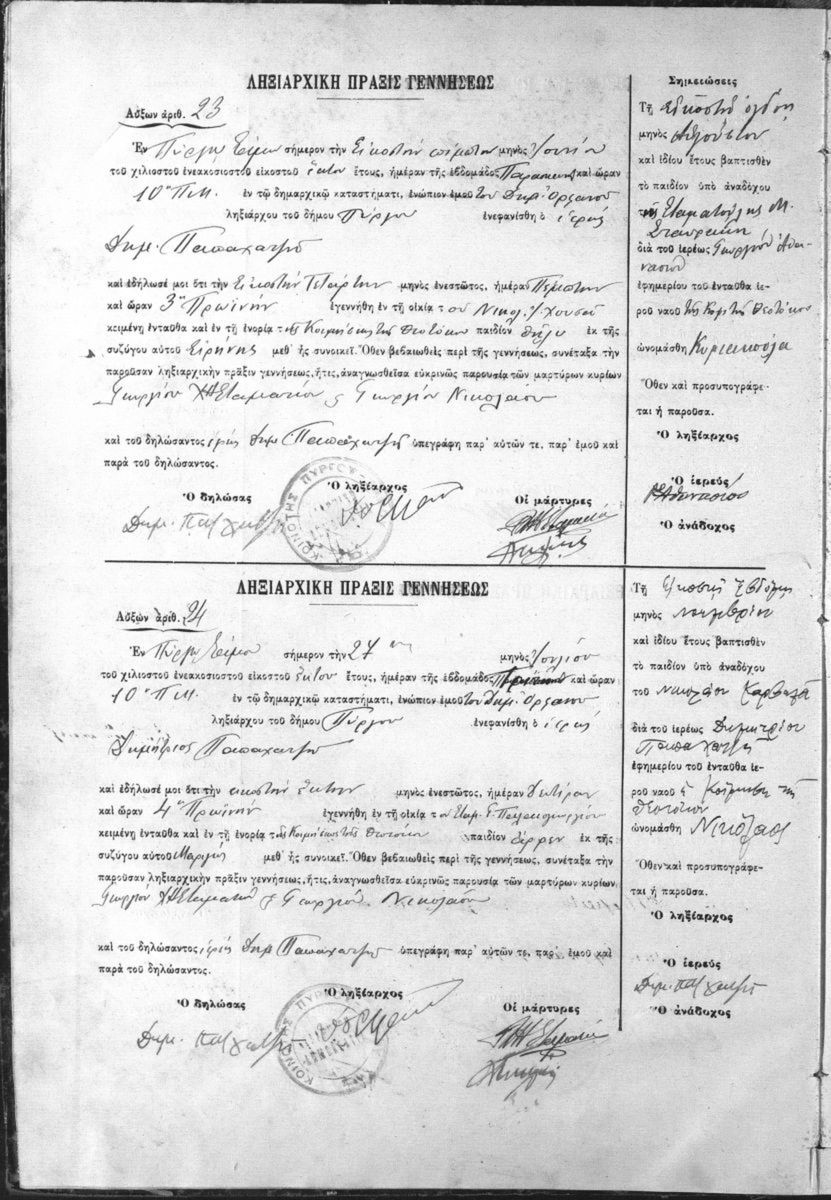 ΛΗΞΙΑΡΧΙΚΗ ΠΡΑΞΙΣ ΓΕΝΝΗΣΕΩΣ
Αὔξων ἀριθ. 23
Ἐν Πύργῳ σήμερον τὴν Εἰκοστὴν πέμπτην μηνὸς Ἰουνίου
τοῦ χιλιοστοῦ ἐνεακοσιοστοῦ εἰκοστοῦ ἕκτου ἔτους, ἡμέραν τῆς ἑβδομάδος Παρασκευὴν καὶ ὥραν
10 π.μ. ἐν τῷ δημαρχικῷ καταστήματι, ἐνώπιον ἐμοῦ τοῦ Δημ. Ὀρφανοῦ
ληξιάρχου τοῦ δήμου Πύργου ἐνεφανίσθη ὁ ἱερεὺς
Δημ. Παπαχατζῆς
καὶ ἐδήλωσέ μοι ὅτι τὴν Εἰκοστὴν Τετάρτην μηνὸς ἐνεστῶτος, ἡμέραν Πέμπτην
καὶ ὥραν 3ην Πρωϊνὴν ἐγεννήθη ἐν τῇ οἰκίᾳ τοῦ Νικολ.
κειμένῃ ἐνταῦθα καὶ ἐν τῇ ἐνορίᾳ τῆς Κοιμήσεως τῆς Θεοτόκου παιδίον θῆλυ ἐκ τῆς
συζύγου αὐτοῦ Εἰρήνης μεθ' ἧς συνοικεῖ. Ὅθεν βεβαιωθεὶς περὶ τῆς γεννήσεως, συνέταξα τὴν
παροῦσαν ληξιαρχικὴν πρᾶξιν γεννήσεως, ἥτις, ἀναγνωσθεῖσα εὐκρινῶς παρουσίᾳ τῶν μαρτύρων κυρίων
Γεωργίου ΧΗΣταματίου Γεωργίου Νικολάου
καὶ τοῦ δηλώσαντος ἱερέως Δημ. Παπαχατζῆ ὑπεγράφη παρ' αὐτῶν τε, παρ' ἐμοῦ καὶ
παρὰ τοῦ δηλώσαντος.
Ὁ δηλώσας Ὁ ληξίαρχος Οἱ μάρτυρες
ΚΟΙΝΟΤΗΣ ΠΥΡΓΟΥ
Σημειώσεις
Τῇ Εἰκοστῇ ὀγδόῃ
μηνὸς Αὐγούστου
καὶ ἰδίου ἔτους βαπτισθὲν
τὸ παιδίον ὑπὸ ἀναδόχου
τῆς Σταματούλης Μ.
διὰ τοῦ ἱερέως Γεωργίου Ἀθα-
νασίου
ἐφημερίου τοῦ ἐνταῦθα ἱε-
ροῦ ναοῦ τῆς Κοιμ. τῆς Θεοτόκου
ὠνομάσθη Κυριακούλα
Ὅθεν καὶ προσυπογράφε-
ται ἡ παροῦσα.
Ὁ ληξίαρχος
Ὁ ἱερεὺς
Ἀθανασίου
Ὁ ἀνάδοχος
ΛΗΞΙΑΡΧΙΚΗ ΠΡΑΞΙΣ ΓΕΝΝΗΣΕΩΣ
Αὔξων ἀριθ. 24
Ἐν Πύργῳ σήμερον τὴν 27 μηνὸς Ἰουλίου
τοῦ χιλιοστοῦ ἐνεακοσιοστοῦ εἰκοστοῦ ἕκτου ἔτους, ἡμέραν τῆς ἑβδομάδος καὶ ὥραν
10 π.μ. ἐν τῷ δημαρχικῷ καταστήματι, ἐνώπιον ἐμοῦ τοῦ Δημ. Ὀρφανοῦ
ληξιάρχου τοῦ δήμου Πύργου ἐνεφανίσθη ὁ ἱερεὺς
Δημήτριος Παπαχατζῆς
καὶ ἐδήλωσέ μοι ὅτι τὴν εἰκοστὴν ἕκτην μηνὸς ἐνεστῶτος, ἡμέραν Δευτέραν
καὶ ὥραν 4ην Πρωϊνὴν ἐγεννήθη ἐν τῇ οἰκίᾳ τοῦ Σταμ. Γ.
κειμένῃ ἐνταῦθα καὶ ἐν τῇ ἐνορίᾳ τῆς Κοιμήσεως τῆς Θεοτόκου παιδίον ἄρρεν ἐκ τῆς
συζύγου αὐτοῦ μεθ' ἧς συνοικεῖ. Ὅθεν βεβαιωθεὶς περὶ τῆς γεννήσεως, συνέταξα τὴν
παροῦσαν ληξιαρχικὴν πρᾶξιν γεννήσεως, ἥτις, ἀναγνωσθεῖσα εὐκρινῶς παρουσίᾳ τῶν μαρτύρων κυρίων
Γεωργίου ΧΗΣταματίου Γεωργίου Νικολάου
καὶ τοῦ δηλώσαντος ἱερέως Δημ. Παπαχατζῆ ὑπεγράφη παρ' αὐτῶν τε, παρ' ἐμοῦ καὶ
παρὰ τοῦ δηλώσαντος.
Ὁ δηλώσας Ὁ ληξίαρχος Οἱ μάρτυρες
ΚΟΙΝΟΤΗΣ ΠΥΡΓΟΥ
Τῇ Εἰκοστῇ ἑβδόμῃ
μηνὸς Νοεμβρίου
καὶ ἰδίου ἔτους βαπτισθὲν
τὸ παιδίον ὑπὸ ἀναδόχου
τοῦ Νικολάου
διὰ τοῦ ἱερέως Δημητρίου
Παπαχατζῆ
ἐφημερίου τοῦ ἐνταῦθα ἱε-
ροῦ ναοῦ Κοίμησις τῆς
Θεοτόκου
ὠνομάσθη Νικόλαος
Ὅθεν καὶ προσυπογράφε-
ται ἡ παροῦσα.
Ὁ ληξίαρχος
Ὁ ἱερεὺς
Ὁ ἀνάδοχος